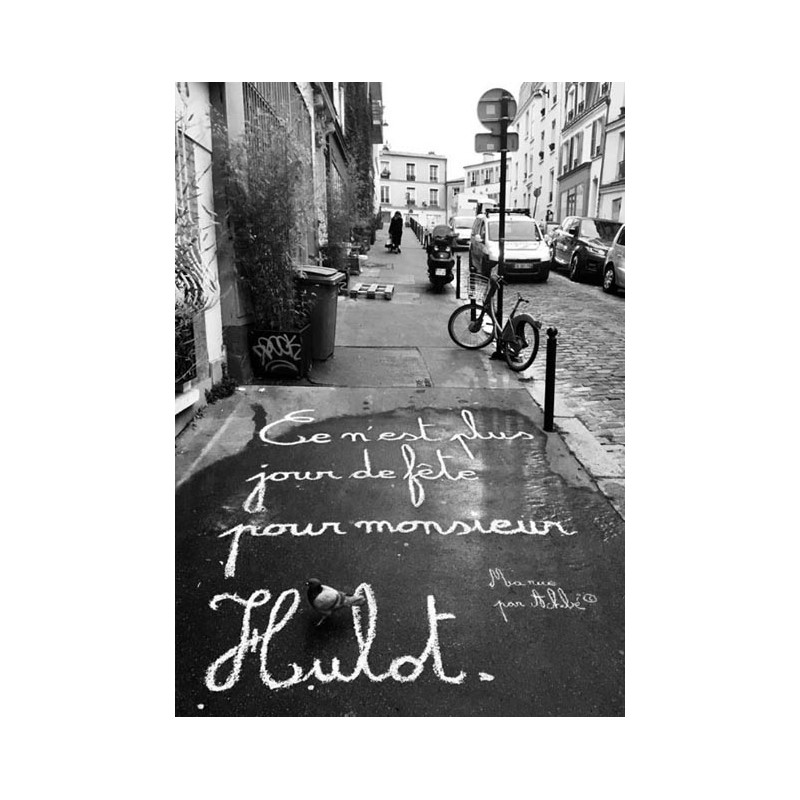 Ce n'est plus
jour de fête
pour monsieur
Hulot.
Ma rue
par Achbé ©